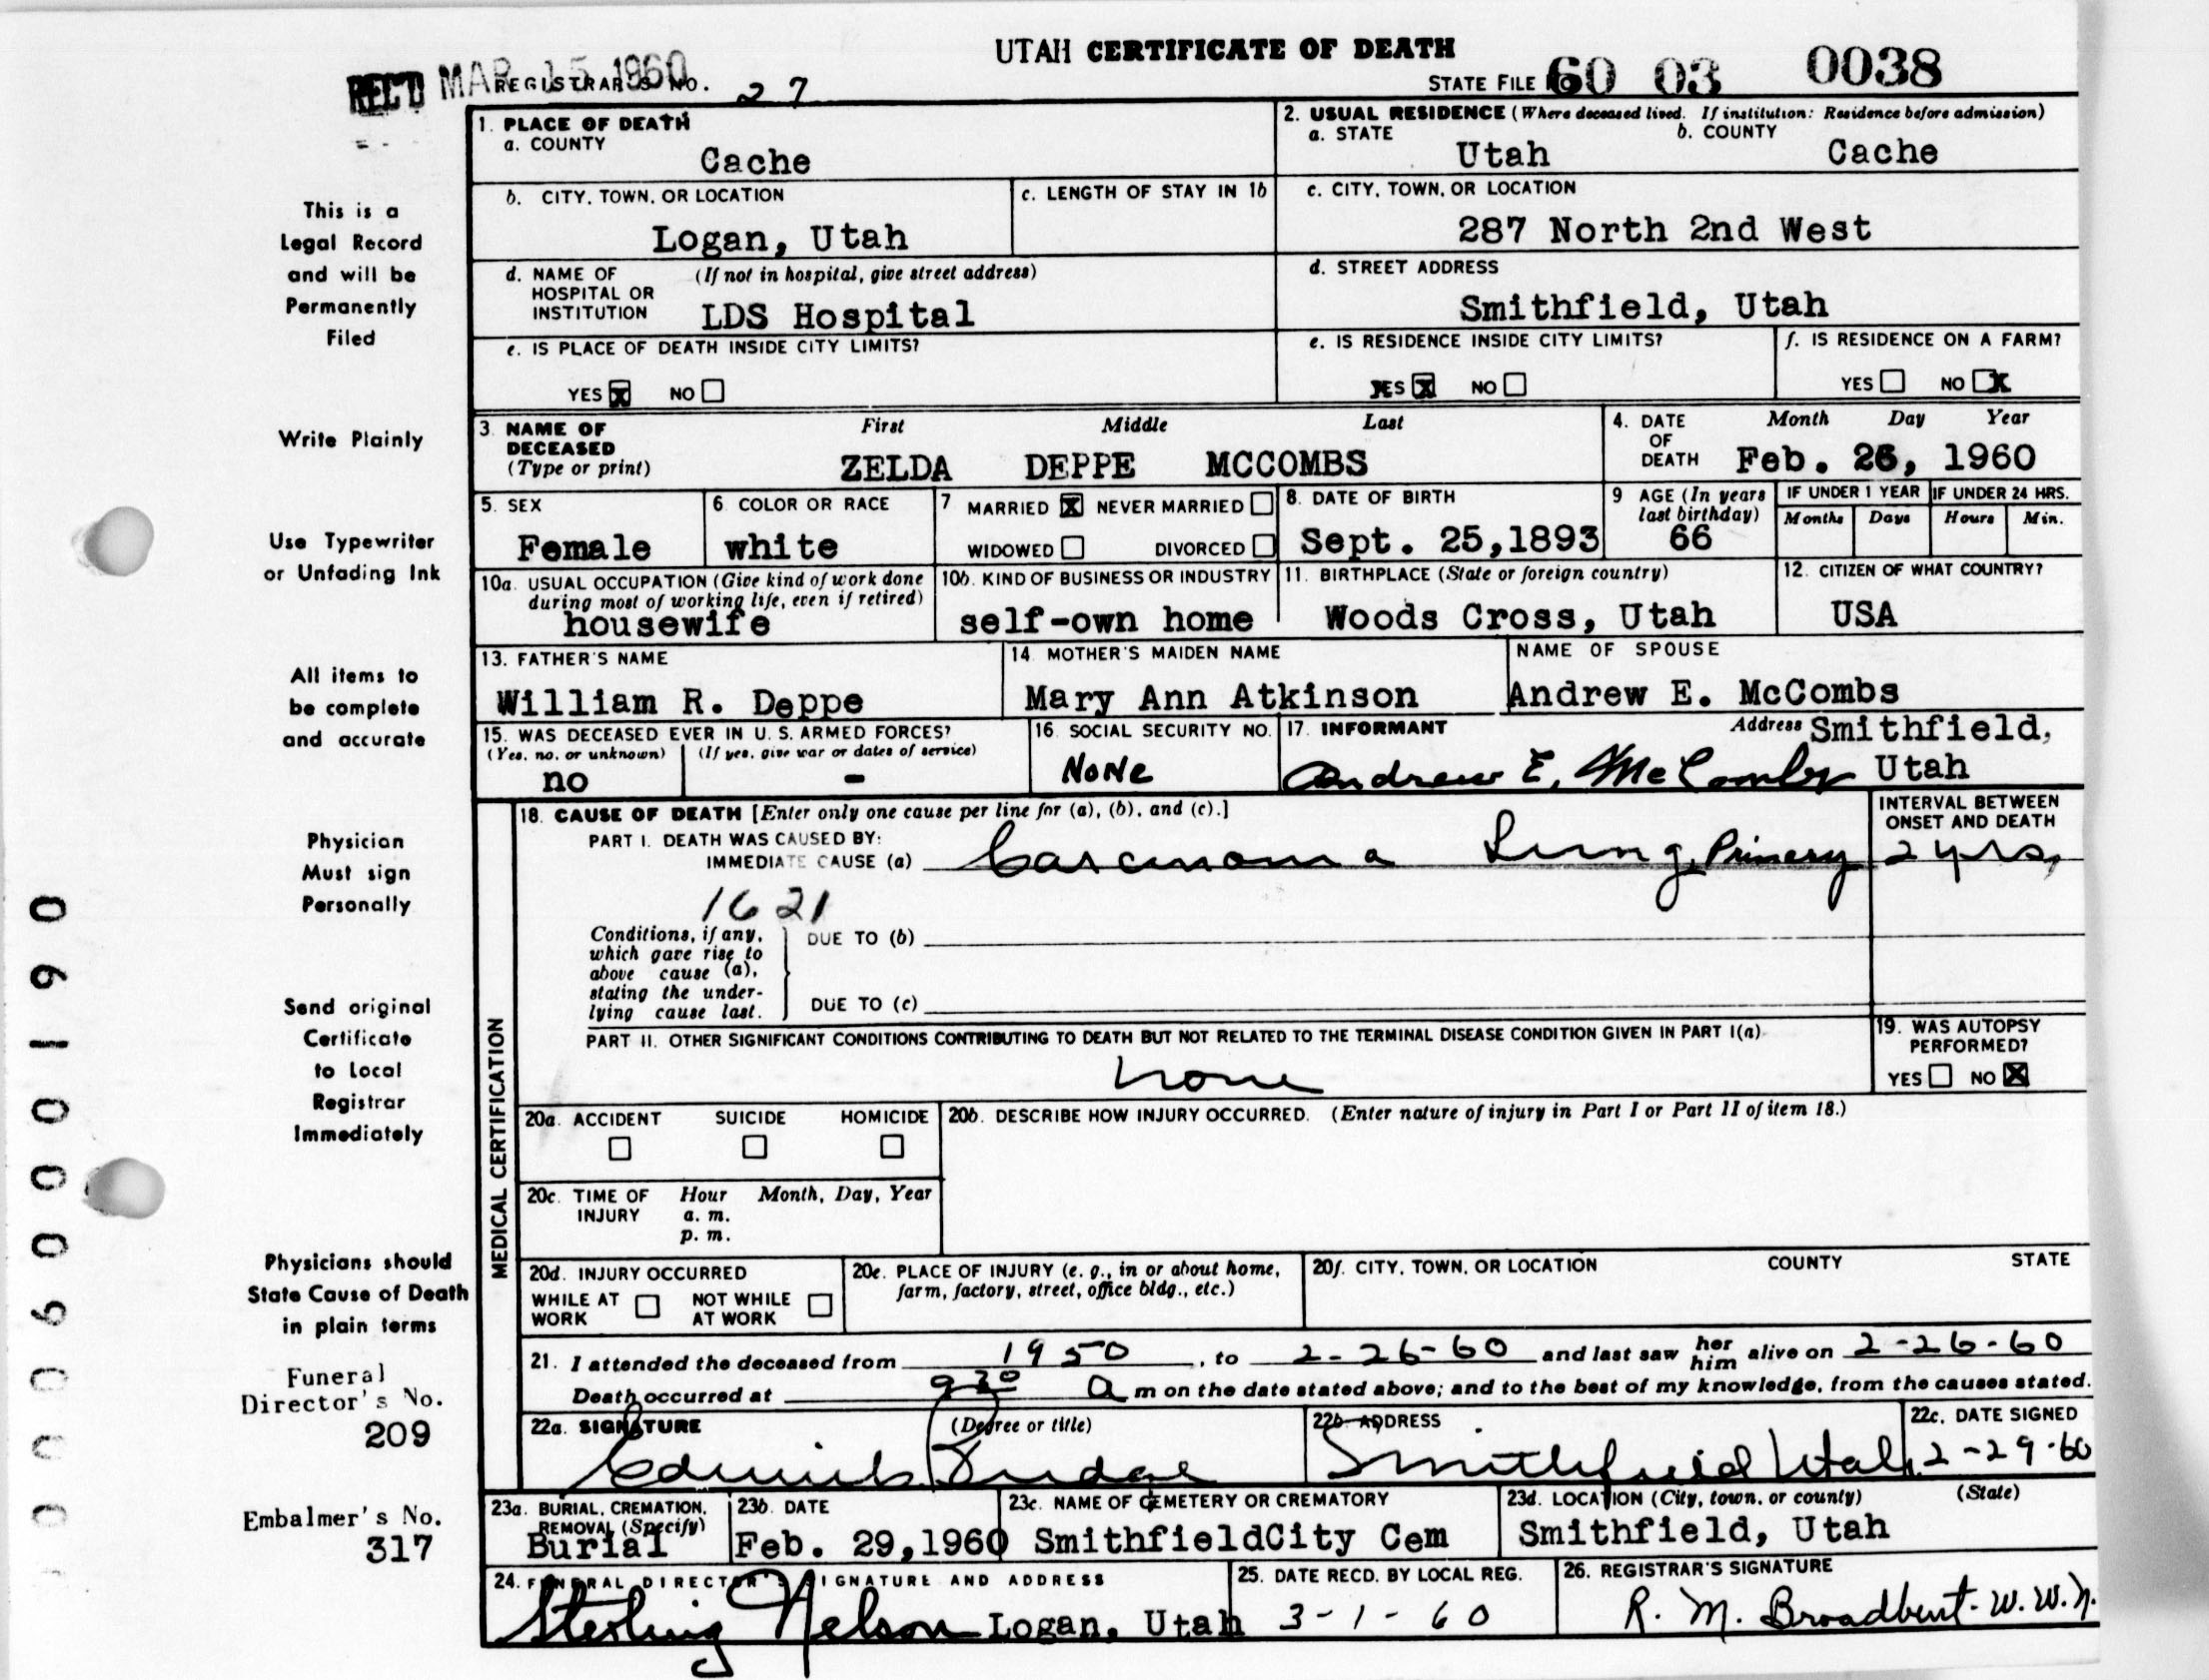 UTAH CERTIFICATE OF DEATH
REC'D MAR 15 1960
REGISTRAR'S NO. 27
STATE FILE NO 60 03 0038
1. PLACE OF DEATH
a. COUNTY
Cache
2. USUAL RESIDENCE (Where deceased lived. If institution: Residence before admission)
a. STATE
Utah
b. COUNTY
Cache
b. CITY, TOWN, OR LOCATION
Logan, Utah
c. LENGTH OF STAY IN 1b
c. CITY, TOWN, OR LOCATION
287 North 2nd West
d. NAME OF HOSPITAL OR INSTITUTION
(If not in hospital, give street address)
LDS Hospital
d. STREET ADDRESS
Smithfield, Utah
e. IS PLACE OF DEATH INSIDE CITY LIMITS?
YES X NO
e. IS RESIDENCE INSIDE CITY LIMITS?
YES X NO
f. IS RESIDENCE ON A FARM?
YES NO X
3. NAME OF DECEASED
(Type or print)
First Middle Last
ZELDA DEPPE MCCOMBS
4. DATE OF DEATH
Month Day Year
Feb. 26, 1960
5. SEX
Female
6. COLOR OR RACE
white
7 MARRIED X NEVER MARRIED
WIDOWED DIVORCED
8. DATE OF BIRTH
Sept. 25,1893
9 AGE (In years last birthday)
66
IF UNDER 1 YEAR
Months Days
IF UNDER 24 HRS.
Hours Min.
10a. USUAL OCCUPATION (Give kind of work done during most of working life, even if retired)
housewife
10b. KIND OF BUSINESS OR INDUSTRY
self-own home
11. BIRTHPLACE (State or foreign country)
Woods Cross, Utah
12. CITIZEN OF WHAT COUNTRY?
USA
13. FATHER'S NAME
William R. Deppe
14. MOTHER'S MAIDEN NAME
Mary Ann Atkinson
NAME OF SPOUSE
Andrew E. McCombs
15. WAS DECEASED EVER IN U. S. ARMED FORCES?
(Yes, no, or unknown) (If yes, give war or dates of service)
no -
16. SOCIAL SECURITY NO.
NoNe
17. INFORMANT
Andrew E. McCombs
Address Smithfield,
Utah
18. CAUSE OF DEATH [Enter only one cause per line for (a), (b), and (c).]
PART I. DEATH WAS CAUSED BY:
IMMEDIATE CAUSE (a) Carcinoma Lung, Primary
INTERVAL BETWEEN ONSET AND DEATH
2 yrs,
1621
Conditions, if any, which gave rise to above cause (a), stating the underlying cause last.
DUE TO (b)
DUE TO (c)
PART II. OTHER SIGNIFICANT CONDITIONS CONTRIBUTING TO DEATH BUT NOT RELATED TO THE TERMINAL DISEASE CONDITION GIVEN IN PART I(a)
none
19. WAS AUTOPSY PERFORMED?
YES NO X
MEDICAL CERTIFICATION
20a. ACCIDENT SUICIDE HOMICIDE
20b. DESCRIBE HOW INJURY OCCURRED. (Enter nature of injury in Part I or Part II of item 18.)
20c. TIME OF INJURY
Hour Month, Day, Year
a. m.
p. m.
20d. INJURY OCCURRED
WHILE AT WORK NOT WHILE AT WORK
20e. PLACE OF INJURY (e. g., in or about home, farm, factory, street, office bldg., etc.)
20f. CITY, TOWN, OR LOCATION COUNTY STATE
21. I attended the deceased from 1950, to 2-26-60 and last saw her him alive on 2-26-60
Death occurred at 9 30 a m on the date stated above; and to the best of my knowledge, from the causes stated.
22a. SIGNATURE (Degree or title)
22b. ADDRESS
Smithfield Utah
22c. DATE SIGNED
2-29-60
23a. BURIAL, CREMATION, REMOVAL (Specify)
Burial
23b. DATE
Feb. 29,1960
23c. NAME OF CEMETERY OR CREMATORY
SmithfieldCity Cem
23d. LOCATION (City, town, or county) (State)
Smithfield, Utah
24. FUNERAL DIRECTOR'S SIGNATURE AND ADDRESS
Sterling Nelson Logan, Utah
25. DATE RECD. BY LOCAL REG.
3-1-60
26. REGISTRAR'S SIGNATURE
R. M. Broadbent - W. W. N.
This is a
Legal Record
and will be
Permanently
Filed
Write Plainly
Use Typewriter
or Unfading Ink
All items to
be complete
and accurate
Physician
Must sign
Personally
Send original
Certificate
to Local
Registrar
Immediately
Physicians should
State Cause of Death
in plain terms
Funeral
Director's No.
209
Embalmer's No.
317
0006000190